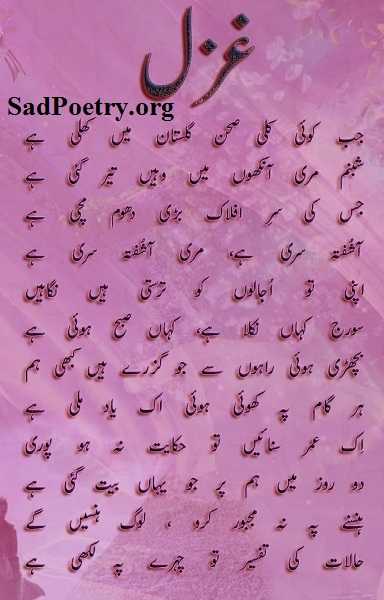 غزل
SadPoetry.org
جب کوئی کلی صحن گلستاں میں کھلی ہے
شبنم مری آنکھوں میں وہیں تیر گئی ہے
جس کی سر افلاک بڑی دھوم مچی ہے
آشفتہ سری ہے، مری آشفتہ سری ہے
اپنی تو اُجالوں کو ترستی ہیں نگاہیں
سورج کہاں نکلا ہے، کہاں صبح ہوئی ہے
بچھڑی ہوئی راہوں سے جو گزرے ہیں کبھی ہم
ہر گام پہ کھوئی ہوئی اک یاد ملی ہے
اِک عمر سنائیں تو حکایت نہ ہو پوری
دو روز میں ہم پر جو یہاں بیت گئی ہے
ہنسنے پہ نہ مجبور کرو ، لوگ ہنسیں گے
حالات کی تفسیر تو چہرے پہ لکھی ہے